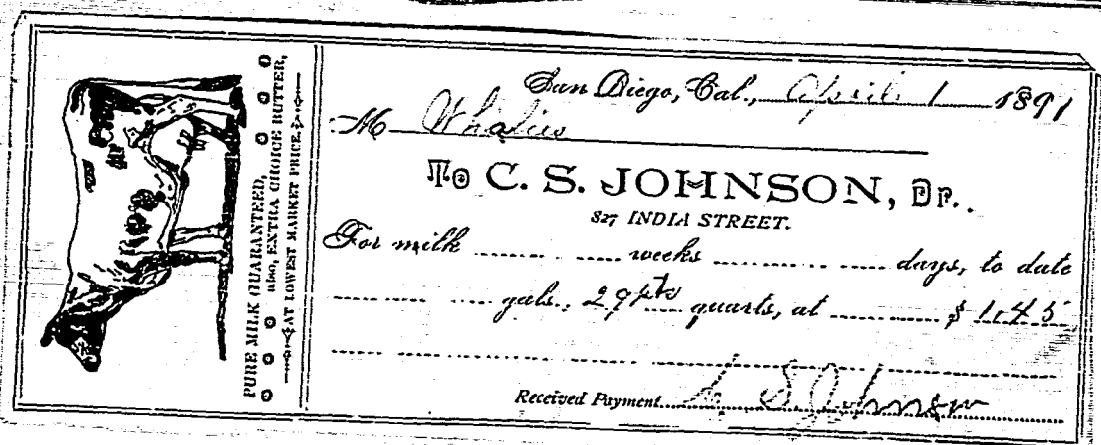 PURE MILK GUARANTEED,
also, EXTRA CHOICE BUTTER,
AT LOWEST MARKET PRICE.
San Diego, Cal., April 1 1891
M Whalies
To C. S. JOHNSON, Dr.
827 INDIA STREET.
For milk weeks days, to date
gals., 29 pts quarts, at $ 1.45
Received Payment C. S. Johnson